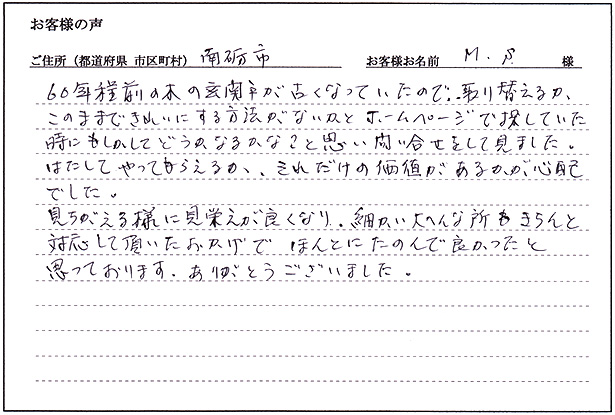 お客様の声
ご住所（都道府県 市区町村） 南砺市 お客様お名前 M.S 様
60年程前の木の玄関戸が古くなっていたので、取り替えるか、
このままできれいにする方法がないかとホームページで探していた
時にもしかしてどうかなるかな?と思い問い合せをして見ました。
はたしてやってもらえるか、それだけの価値があるかが心配
でした。
見ちがえる様に見栄えが良くなり、細かい大へんな所もきちんと
対応して頂いたおかげで ほんとにたのんで良かったと
思っております。ありがとうございました。